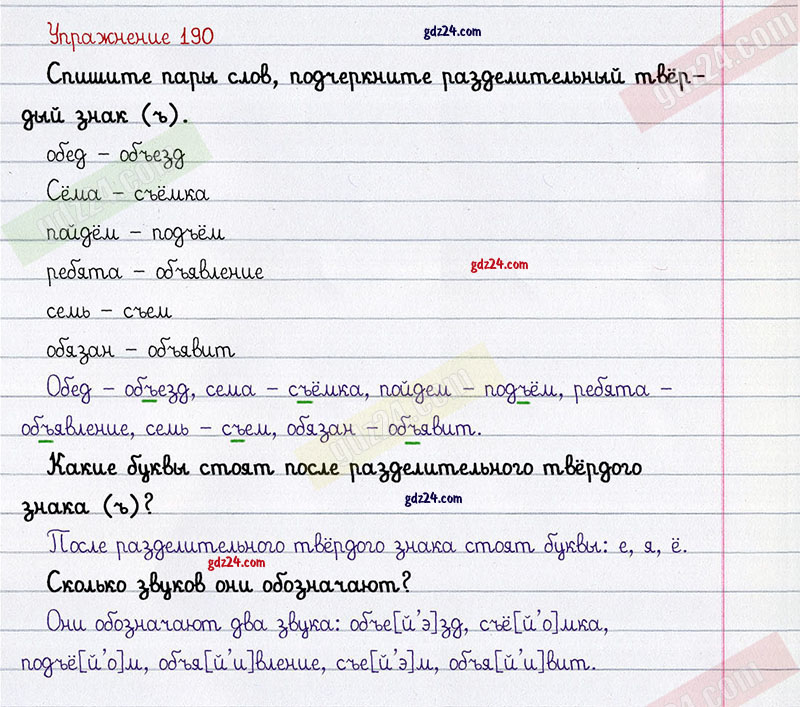 Упражнение 190 gdz24.com
Спишите пары слов, подчеркните разделительный твёр-
дый знак (ъ).
обед – объезд
Сёма – съёмка
пойдём – подъём
ребята – объявление
gdz24.com
семь – съем
обязан – объявит
Обед – объезд, сема – съёмка, пойдем – подъём, ребята –
объявление, семь – съем, обязан – объявит.
Какие буквы стоят после разделительного твёрдого
знака (ъ)?
gdz24.com
После разделительного твёрдого знака стоят буквы: е, я, ё.
gdz24.com
Сколько звуков они обозначают?
Они обозначают два звука: объе[й'э]зд, съё[й'о]мка,
подъё[й'о]м, объя[й'и]вление, съе[й'э]м, объя[й'и]вит.
gdz24.com
gdz24.com
gdz24.com
gdz24.com